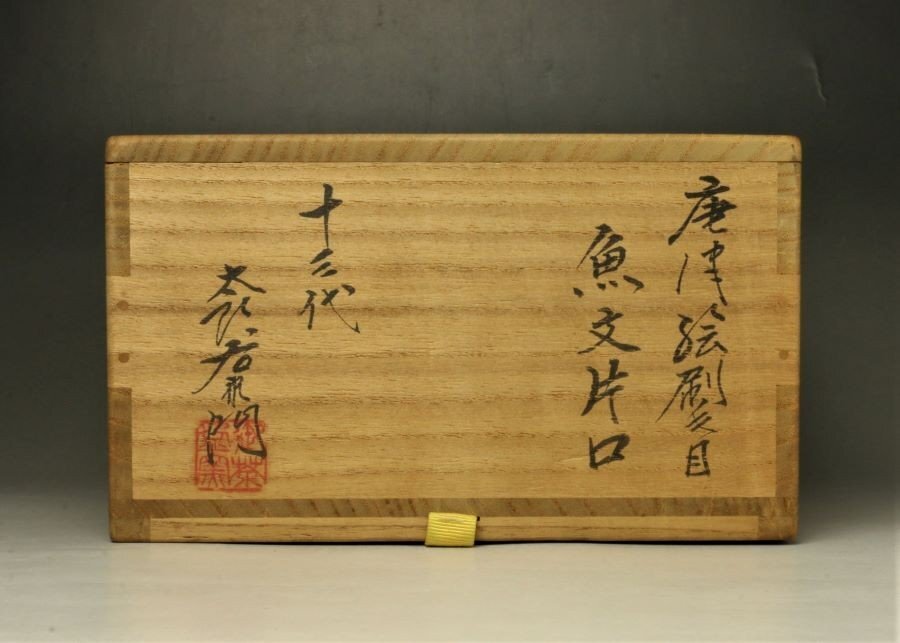 唐津絵刷毛目
魚文片口
十三代
太郎右衛門
御茶盌窯